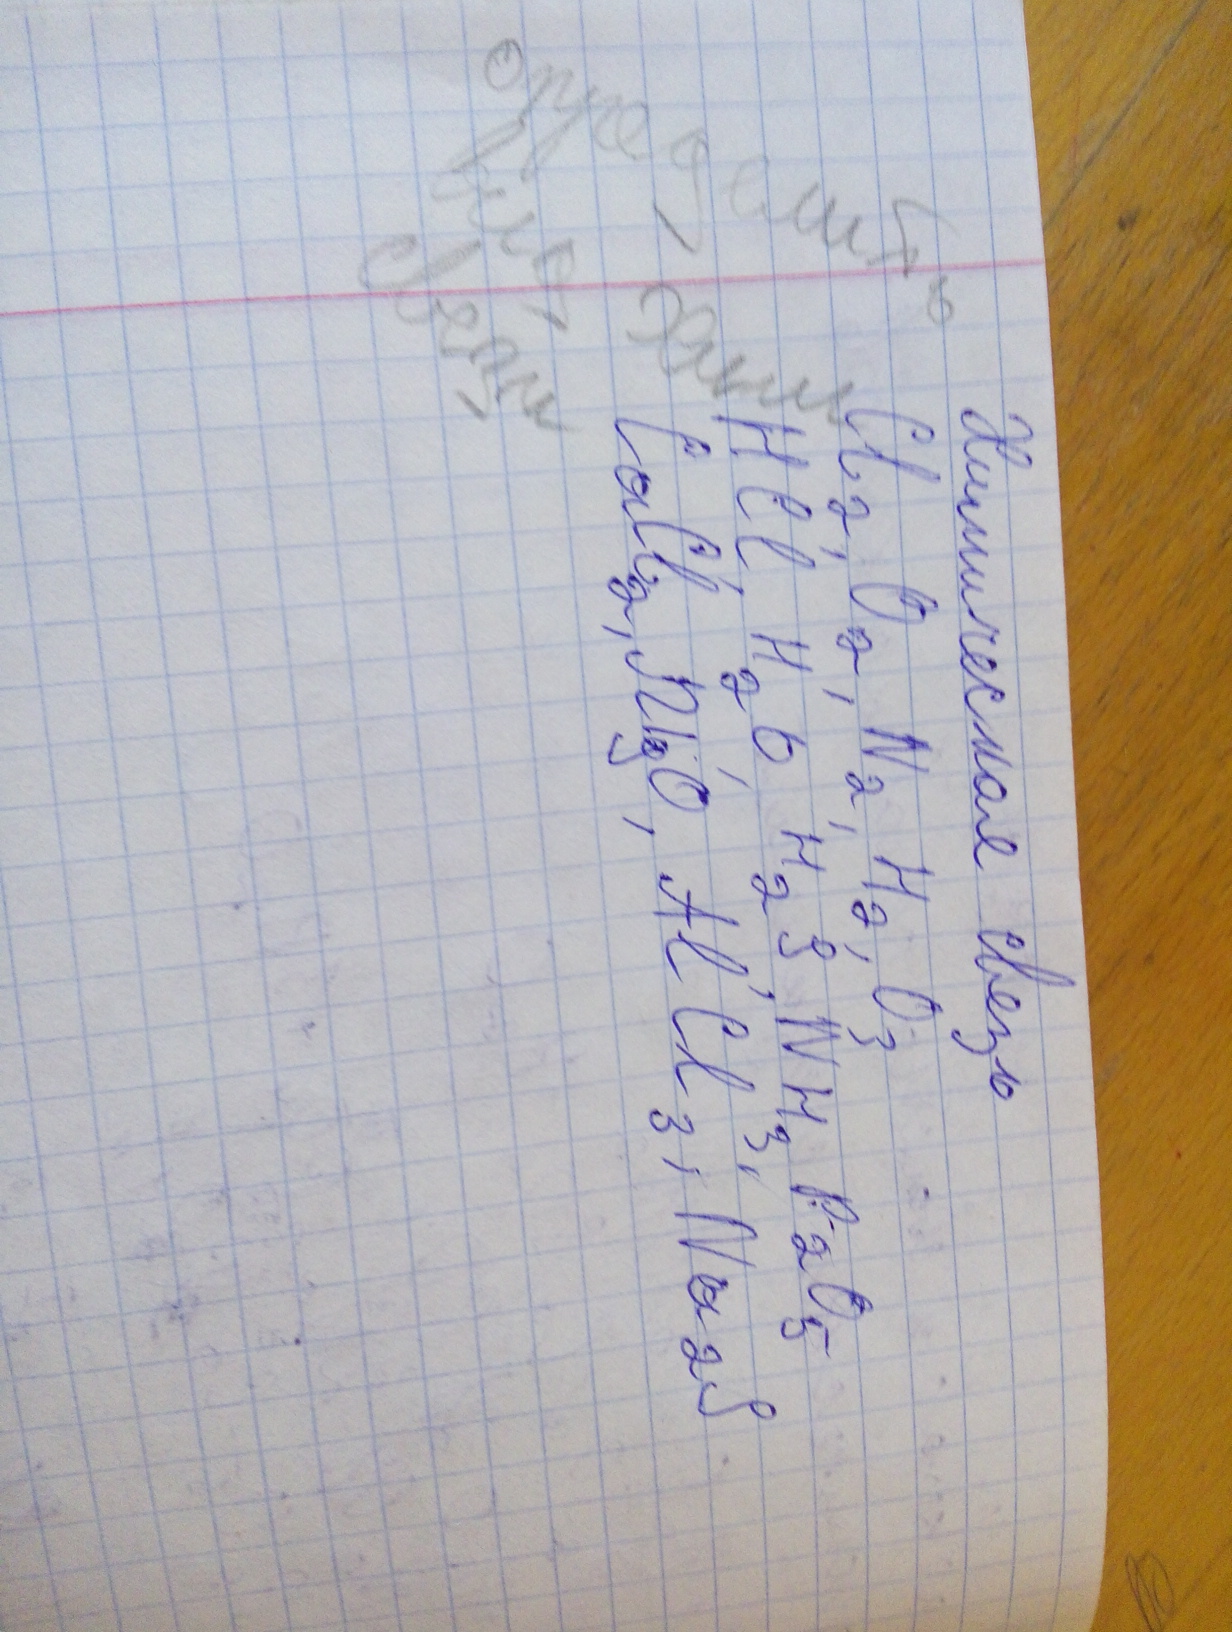 Химическая связь
Cl₂, O₂, N₂, H₂, O₃
HCl, H₂O, H₂S, NH₃, P₂O₅
CaCl₂, MgO, AlCl₃, Na₂S
определить
вид хим
связи